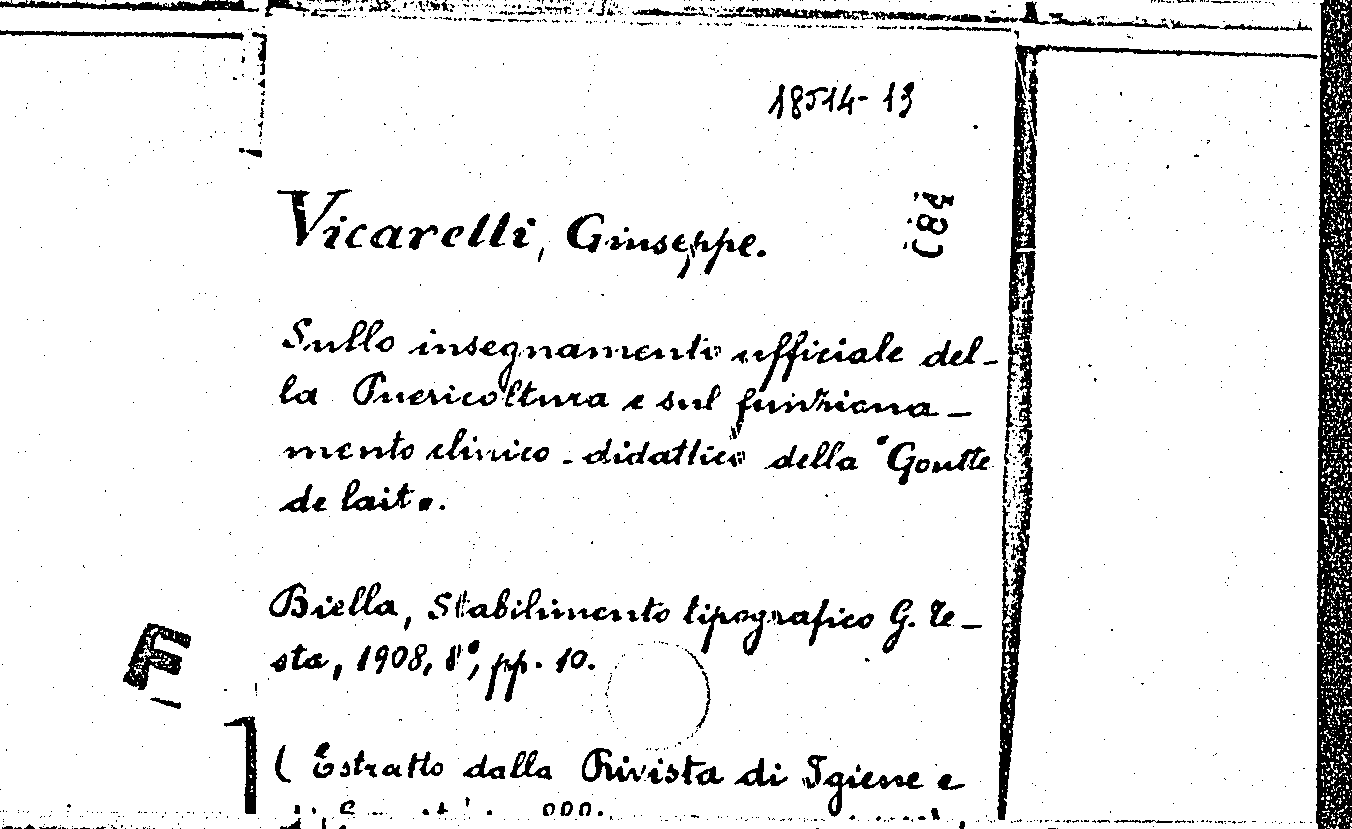 18514-13
Vicarelli, Giuseppe.
Sullo insegnamento ufficiale del-
la Puericoltura e sul funziona-
mento clinico-didattico della "Goutte
de lait".
Biella, Stabilimento tipografico G. Te-
sta, 1908, 8°, pp. 10.
F
( Estratto dalla Rivista di Igiene e